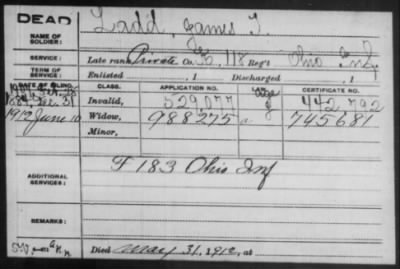 DEAD
NAME OF SOLDIER: Ladd, James T.
SERVICE: Late rank, Private Co. 118 Reg't Ohio Inf.
TERM OF SERVICE: Enlisted , 1 Discharged , 1
DATE OF FILING. CLASS. APPLICATION NO. LAW. CERTIFICATE NO.
Invalid, 529,077 Age 442,792
1912 June 10 Widow, 988275 a 745681
Minor,
ADDITIONAL SERVICES: F 183 Ohio Inf
REMARKS:
Died May 31, 1912, at